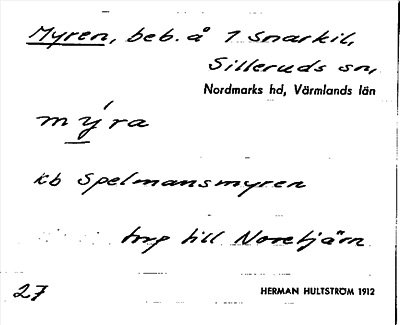 Myren, beb. å 1 Snarkil,
Silleruds sn,
Nordmarks hd, Värmlands län
mýra
kb Spelmansmyren
torp till Noretjärn
27
HERMAN HULTSTRÖM 1912